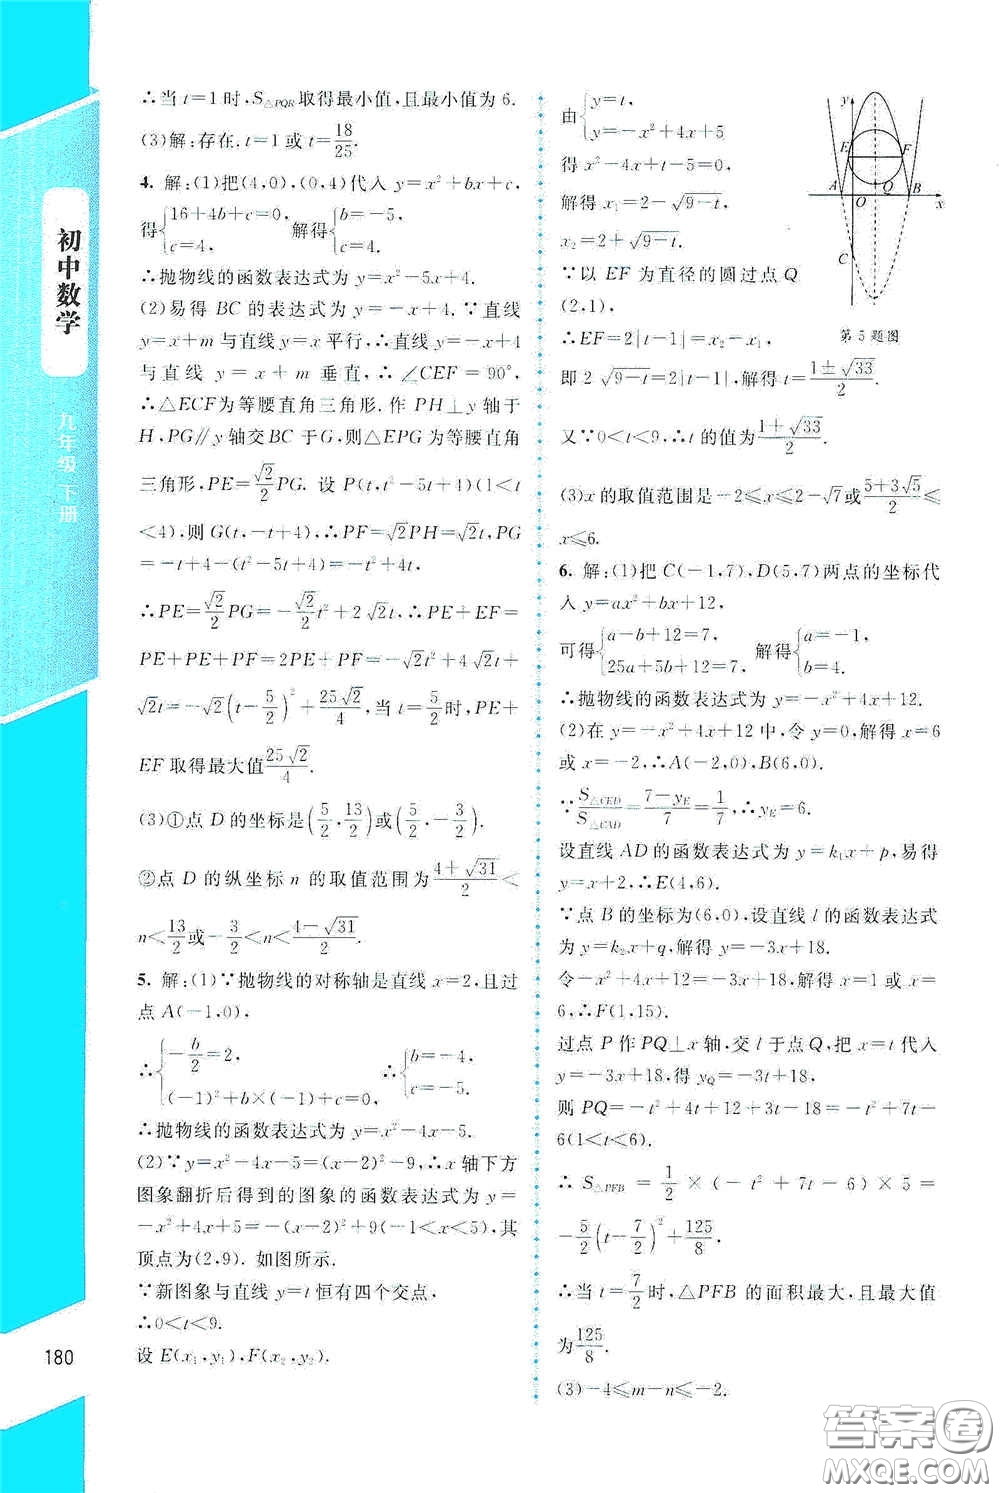 初中数学
九年级 下册
180
∴当 t=1 时,S△PQR取得最小值,且最小值为 6.
(3)解:存在. t=1 或 t=18/25.
4. 解:(1)把(4,0),(0,4)代入 y=x²+bx+c,
得{16+4b+c=0, c=4, 解得{b=-5, c=4.
∴抛物线的函数表达式为 y=x²-5x+4.
(2)易得 BC 的表达式为 y=-x+4. ∵直线
y=x+m 与直线 y=x 平行,∴直线 y=-x+4
与直线 y=x+m 垂直,∴∠CEF=90°,
∴△ECF为等腰直角三角形. 作 PH⊥y 轴于
H,PG∥y 轴交BC于G,则△EPG为等腰直角
三角形,PE=√2/2 PG. 设 P(t,t²-5t+4)(1<t
<4),则 G(t,-t+4),∴PF=√2PH=√2t,PG=
-t+4-(t²-5t+4)=-t²+4t,
∴PE=√2/2 PG=-√2/2 t²+2√2t,∴PE+EF=
PE+PE+PF=2PE+PF=-√2t²+4√2t+
√2t=-√2(t-5/2)²+25√2/4,当 t=5/2时,PE+
EF 取得最大值25√2/4.
(3)①点 D 的坐标是(5/2,13/2)或(5/2,-3/2).
②点 D 的纵坐标 n 的取值范围为(4+√31)/2<
n<13/2或-3/2<n<(4-√31)/2.
5. 解:(1)∵抛物线的对称轴是直线 x=2,且过
点 A(-1,0),
∴{-b/2=2, (-1)²+b×(-1)+c=0, ∴{b=-4, c=-5.
∴抛物线的函数表达式为 y=x²-4x-5.
(2)∵y=x²-4x-5=(x-2)²-9,∴x轴下方
图象翻折后得到的图象的函数表达式为 y=
-x²+4x+5=-(x-2)²+9(-1<x<5),其
顶点为(2,9). 如图所示.
∵新图象与直线 y=t 恒有四个交点,
∴0<t<9.
设 E(x₁,y₁),F(x₂,y₂).
由{y=t, y=-x²+4x+5
得 x²-4x+t-5=0,
解得 x₁=2-√9-t,
x₂=2+√9-t.
∵以 EF 为直径的圆过点 Q
(2,1),
∴EF=2|t-1|=x₂-x₁,
即 2√9-t=2|t-1|,解得 t=(1±√33)/2.
又∵0<t<9,∴t 的值为(1+√33)/2.
y
E
F
A
O
Q
B
x
C
第 5 题图
(3)x 的取值范围是-2≤x≤2-√7或(5+3√5)/2≤
x≤6.
6. 解:(1)把 C(-1,7),D(5,7)两点的坐标代
入 y=ax²+bx+12,
可得{a-b+12=7, 25a+5b+12=7, 解得{a=-1, b=4.
∴抛物线的函数表达式为 y=-x²+4x+12.
(2)在 y=-x²+4x+12 中,令 y=0,解得 x=6
或 x=-2,∴A(-2,0),B(6,0).
∵S△CED/S△CAD=(7-yE)/7=1/7,∴yE=6.
设直线 AD 的函数表达式为 y=k₁x+p,易得
y=x+2,∴E(4,6).
∵点 B 的坐标为(6,0),设直线 l 的函数表达式
为 y=k₂x+q,解得 y=-3x+18.
令-x²+4x+12=-3x+18,解得 x=1 或 x=
6,∴F(1,15).
过点 P 作 PQ⊥x 轴,交 l 于点 Q,把 x=t 代入
y=-3x+18,得 yQ=-3t+18,
则 PQ=-t²+4t+12+3t-18=-t²+7t-
6(1<t<6).
∴S△PFB=1/2×(-t²+7t-6)×5=
-5/2(t-7/2)²+125/8.
∴当 t=7/2时,△PFB 的面积最大,且最大值
为125/8.
(3)-4≤m-n≤-2.
答案卷
MXQE.COM